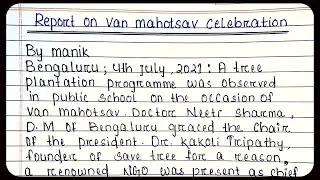 Report on Van mahotsav celebration
By manik
Bengaluru; 4th july, 2021: A tree
plantation programme was observed
in public school on the occasion of
van mahotsav. Doctor Neetr Sharma,
D.M of Bengaluru graced the chair
of the president. Dr. Kakoli Tripathy,
founder of save tree for a reason,
a renowned NGO was present as chief